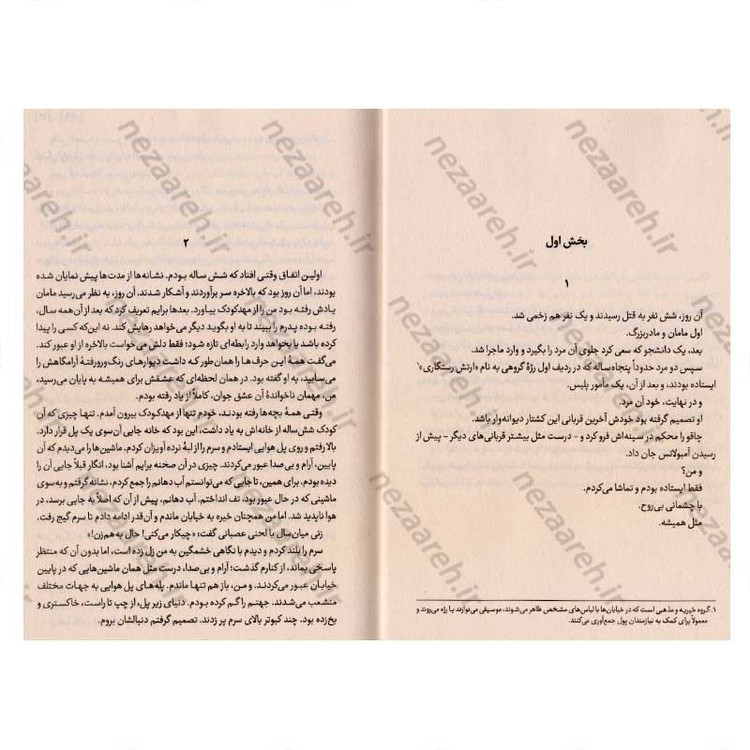 بخش اول
۱
آن روز، شش نفر به قتل رسیدند و یک نفر هم زخمی شد.
اول مامان و مادربزرگ.
بعد، یک دانشجو که سعی کرد جلوی آن مرد را بگیرد و وارد ماجرا شد.
سپس دو مرد حدوداً پنجاه‌ساله که در ردیف اول رژهٔ گروهی به نام «ارتش رستگاری»۱
ایستاده بودند، و بعد از آن، یک مأمور پلیس.
و در نهایت، خود آن مرد.
او تصمیم گرفته بود خودش آخرین قربانی این کشتار دیوانه‌وار باشد.
چاقو را محکم در سینه‌اش فرو کرد و - درست مثل بیشتر قربانی‌های دیگر - پیش از
رسیدن آمبولانس جان داد.
و من؟
فقط ایستاده بودم و تماشا می‌کردم.
با چشمانی بی‌روح.
مثل همیشه.
۱. گروه خیریه و مذهبی است که در خیابان‌ها با لباس‌های مشخص ظاهر می‌شوند، موسیقی می‌نوازند یا رژه می‌روند و
معمولاً برای کمک به نیازمندان پول جمع‌آوری می‌کنند.
۲
اولین اتفاق وقتی افتاد که شش ساله بودم. نشانه‌ها از مدت‌ها پیش نمایان شده
بودند، اما آن روز بود که بالاخره سر برآوردند و آشکار شدند. آن روز، به نظر می‌رسید مامان
یادش رفته بود من را از مهدکودک بیاورد. بعدها برایم تعریف کرد که بعد از آن همه سال،
رفته بوده پدرم را ببیند تا به او بگوید دیگر می‌خواهد رهایش کند. نه این‌که کسی را پیدا
کرده باشد یا بخواهد وارد رابطه‌ای تازه شود؛ فقط دلش می‌خواست بالاخره از او عبور کند.
می‌گفت همهٔ این حرف‌ها را همان‌طور که داشت دیوارهای رنگ‌ورورفتهٔ آرامگاهش را
می‌سابید، به او گفته بود. در همان لحظه‌ای که عشقش برای همیشه به پایان می‌رسید،
من، مهمان ناخواندهٔ آن عشق جوان، کاملاً از یاد رفته بودم.
وقتی همهٔ بچه‌ها رفته بودند، خودم تنها از مهدکودک بیرون آمدم. تنها چیزی که آن
کودک شش‌ساله از خانه‌اش به یاد داشت، این بود که خانه جایی آن‌سوی یک پل قرار دارد.
بالا رفتم و روی پل هوایی ایستادم و سرم را از لبهٔ نرده آویزان کردم. ماشین‌ها را می‌دیدم که آن
پایین، آرام و بی‌صدا عبور می‌کردند. چیزی در آن صحنه برایم آشنا بود، انگار قبلاً جایی آن را
دیده بودم. برای همین، تا جایی که می‌توانستم آب دهانم را جمع کردم، نشانه گرفتم و به‌سوی
ماشینی که در حال عبور بود، تف انداختم. آب دهانم، پیش از آن که اصلاً به جایی برسد، در
هوا ناپدید شد. اما من همچنان خیره به خیابان ماندم و آن‌قدر ادامه دادم تا سرم گیج رفت.
زنی میان‌سال با لحنی عصبانی گفت: «چیکار می‌کنی! حال به هم‌زن!»
سرم را بلند کردم و دیدم با نگاهی خشمگین به من زل زده است، اما بدون آن که منتظر
پاسخی بماند، از کنارم گذشت؛ آرام و بی‌صدا، درست مثل همان ماشین‌هایی که در پایین
خیابان عبور می‌کردند. و من، باز هم تنها ماندم. پله‌های پل هوایی به جهات مختلف
منشعب می‌شدند. جهتم را گم کرده بودم. دنیای زیر پل، از چپ تا راست، خاکستری و
یخ‌زده بود. چند کبوتر بالای سرم پر زدند. تصمیم گرفتم دنبالشان بروم.
nezaareh.ir